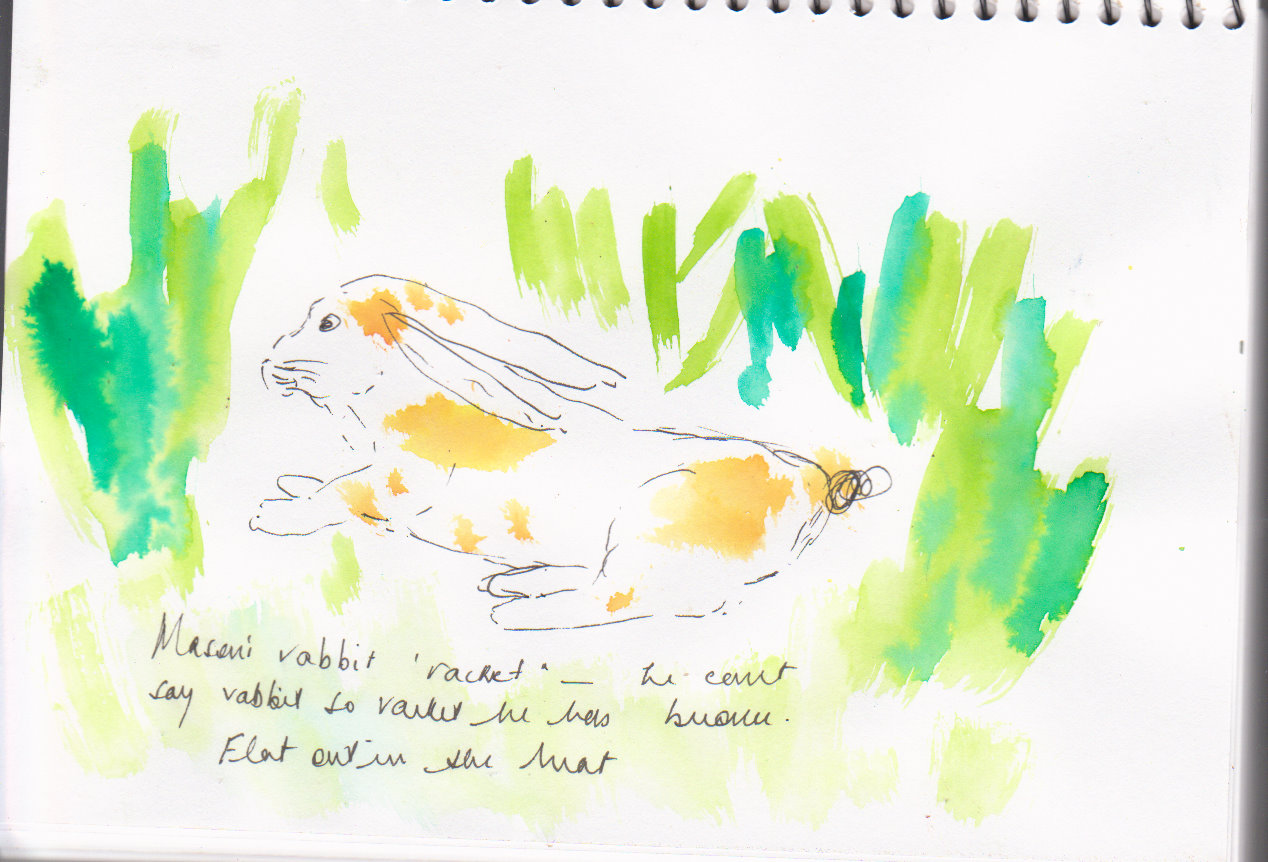 rabbit 'racket' — he cant
say rabbit so racket he has become.
Flat out in the heat